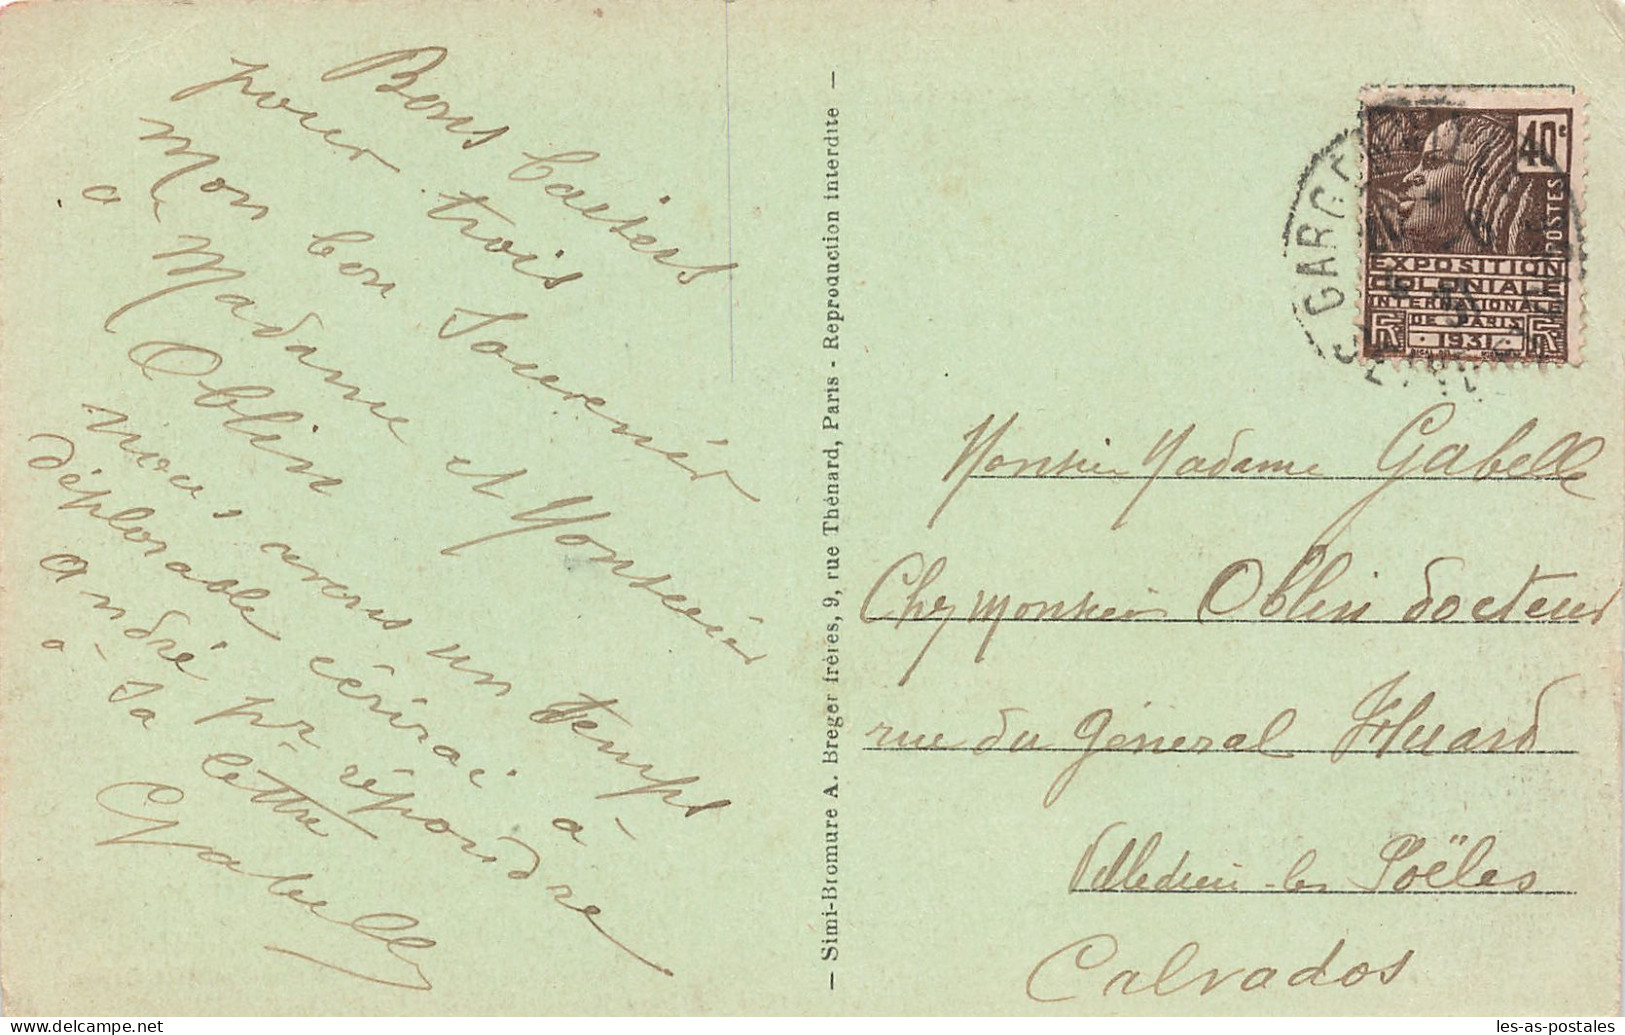 Bons baisers
pour trois
Mon bon Souvenir
à Madame et Monsieur
Oblin
nous avons un temps
déplorable écrirai à
André pr répondre
à sa lettre
Gabelle
— Simi-Bromure A. Breger frères, 9, rue Thénard, Paris - Reproduction interdite —
40c
POSTES
EXPOSITION
COLONIALE
INTERNATIONALE
DE PARIS
RF 1931 RF
Monsieur Madame Gabelle
Chez Monsieur Oblin docteur
rue du Général Huard
Villedieu-les Poëles
Calvados
les-as-postales.com